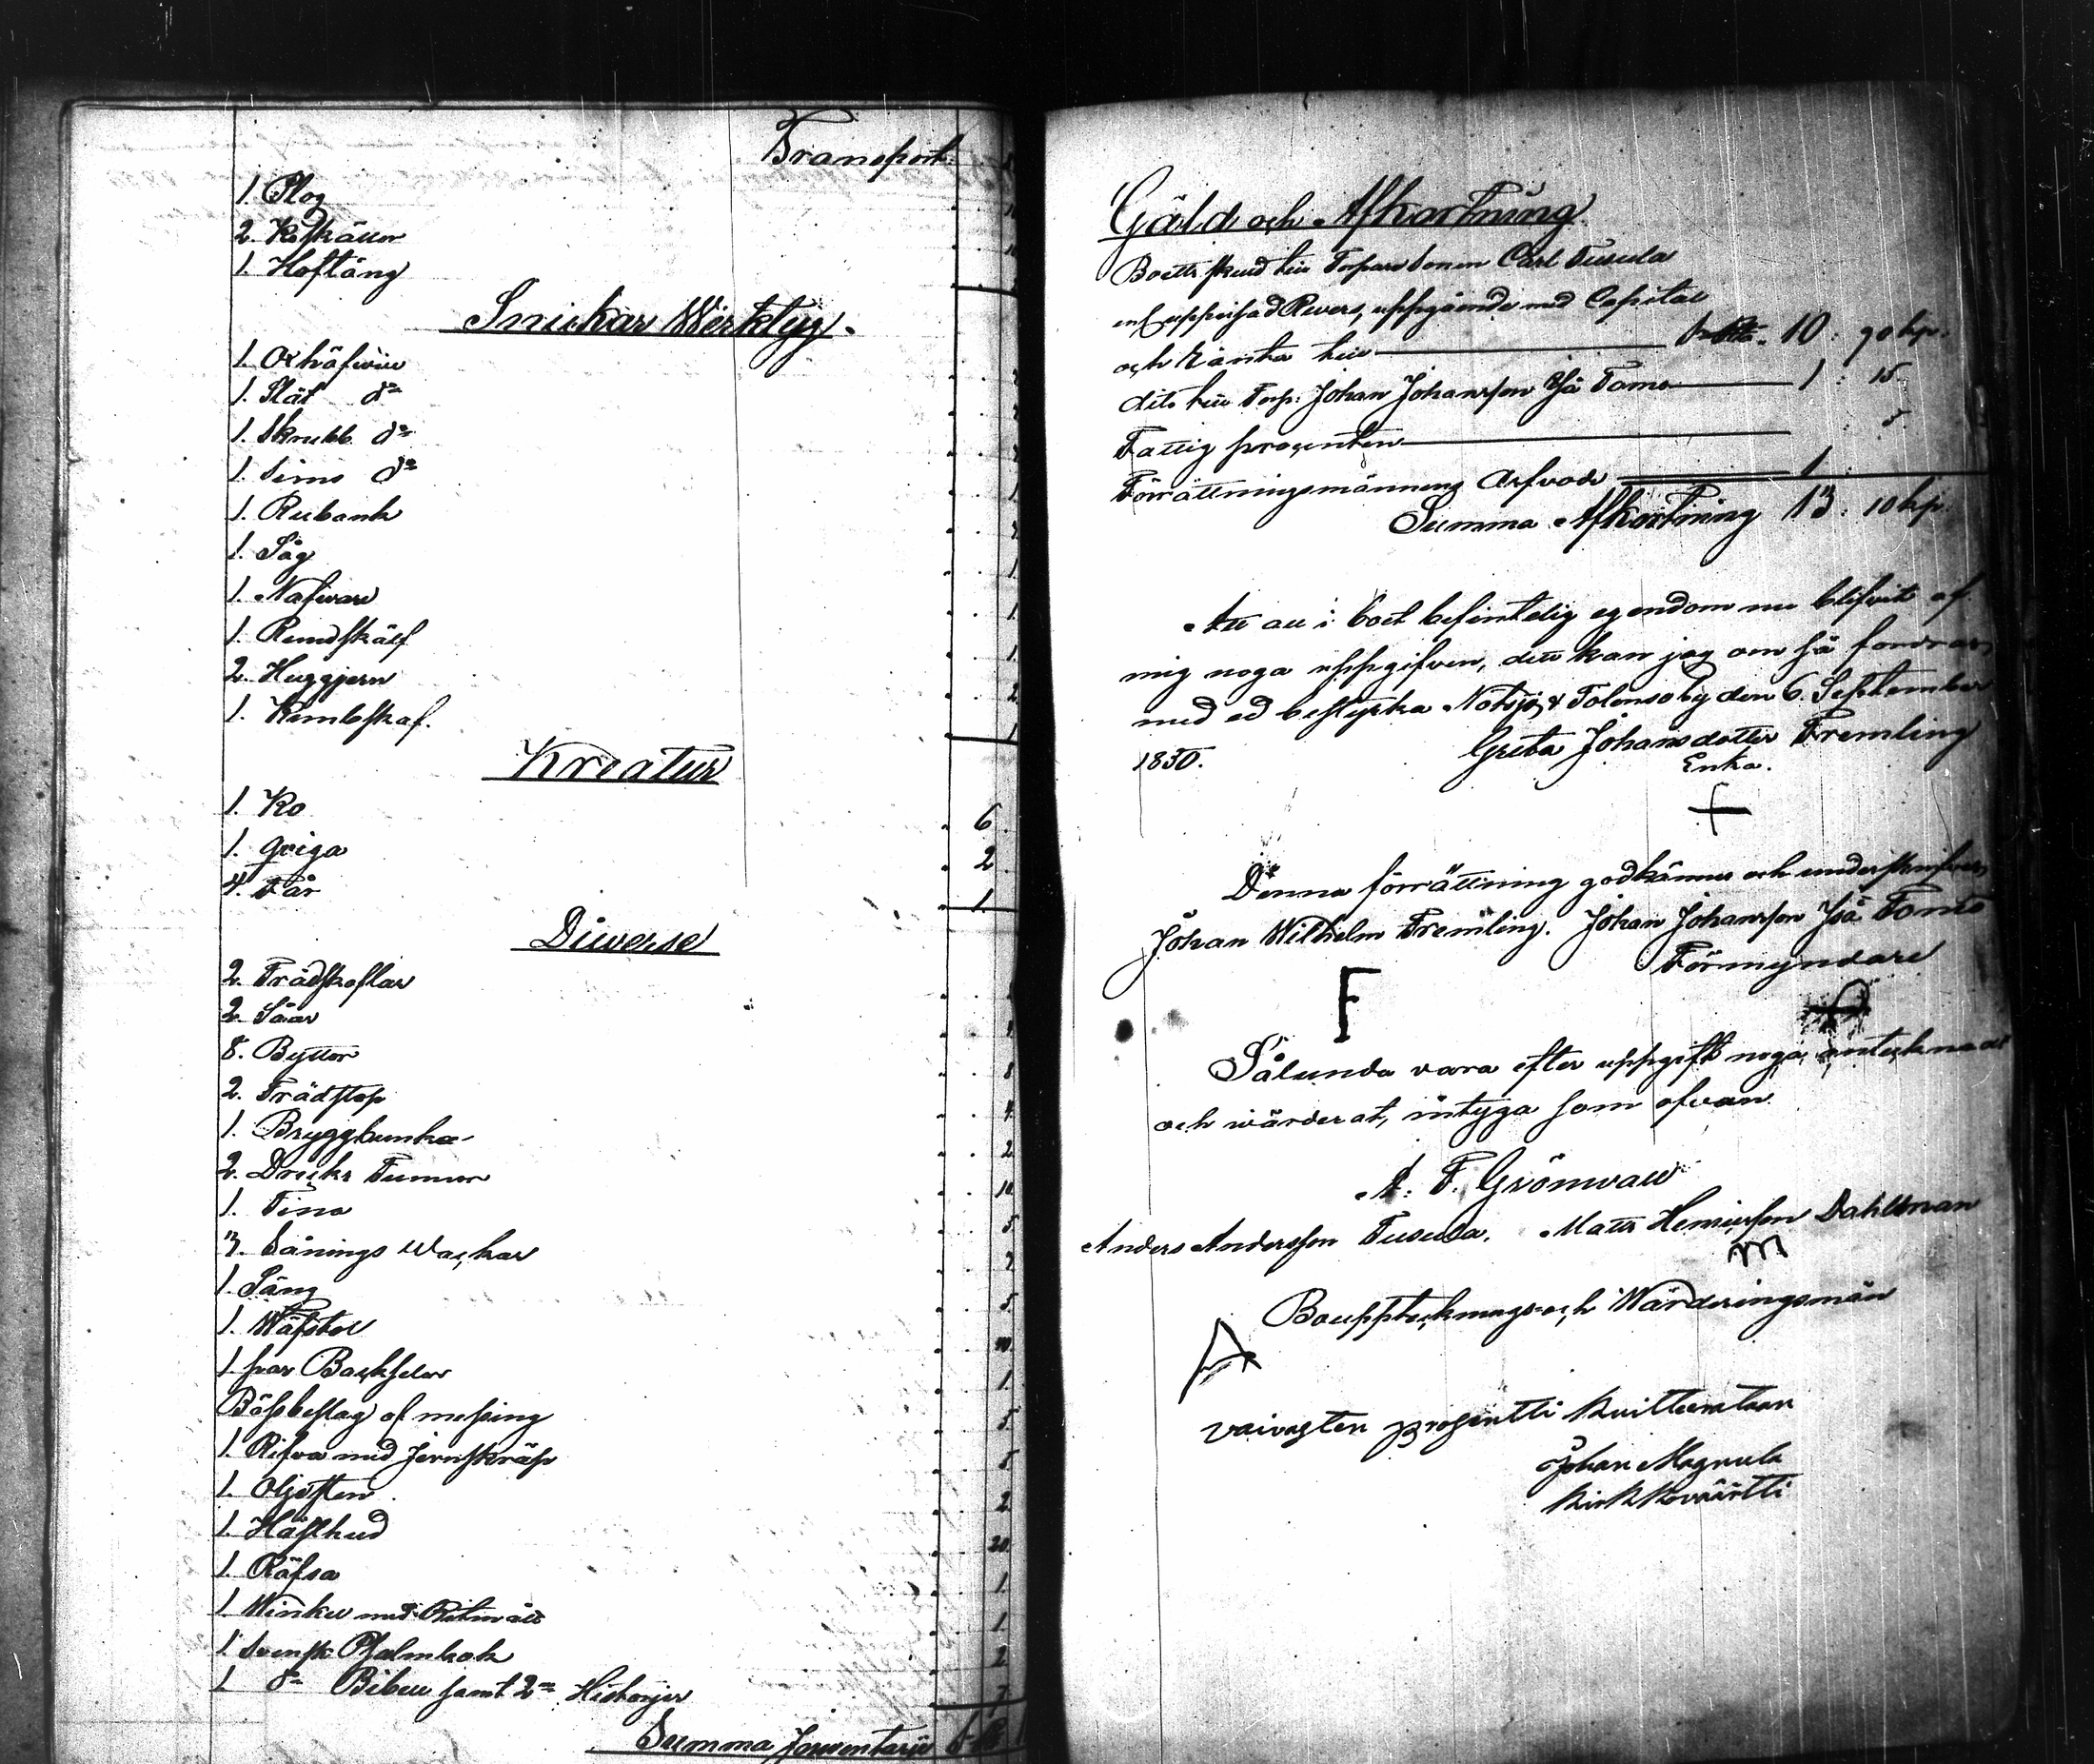 Transport
1. Plog
2. Koskällor
1. Hoftång
Snickar Wërktyg.
1. Oxhäfwill
1. Slät do
1. Skrubb do
1. Sims do
1. Rubank
1. Såg
1. Nafware
1. Rundskälf
2. Huggjern
1. Kimbskaf.
Kreatur
1. Ko 6
1. Qviga 2
4. Får 1
Diverse
2. Trädskoflar
2. Såar
8. Byttor 8
2. Trädstop 4
1. Bryggbunka 2
2. Dricks Tunnor 10
1. Tina 5
3. Sånings Wackar
1. Säng 5
1. Wäfstol
1. par Backselor 1
Bössbeslag af messing 5
1. Rifva med Jernskräp 5
1. Oljosten 2
1. Hästhud 20
1. Räfsa 1
1 Winkel med Ritmått 1
1 Svensk Psalmbok 2
1 do Bibel samt 2ne Historjer
Summa Inventarii
Gäld och Afkortning
Boets skuld till Torpare Sonen Carl Tusula
enl uppvisad Revers, uppgående med Capital
och Ränta till 10: 90 kp.
dito till Torp: Johan Johansson Yså Tomo 1: 15
Fattig procenten 5
Förrättningsmännens Arfvode 1
Summa Afkortning 13: 10 kp.
Att all i boet befintelig egendom nu blifvit af
mig noga uppgifven, dett kan jag om så fordras
med ed bestyrka Notsjö & Tolensby den 6. September
1850. Greta Johansdotter Fremling
Enka.
Denna förrättning godkänner och underskrifver
Johan Wilhelm Fremling. Johan Johansson Yså Tomo
Förmyndare
F
Sålunda vara efter uppgift noga antecknadt
och wärderat, intyga som ofvan
A. F. Grönwall
Anders Andersson Tusula. Matts Henricsson Dahlman
m
Boupptecknings och Wärderingsmän
A
Vaivasten prosentti kuitterataan
Johan Magnula
Kirkkoväärtti